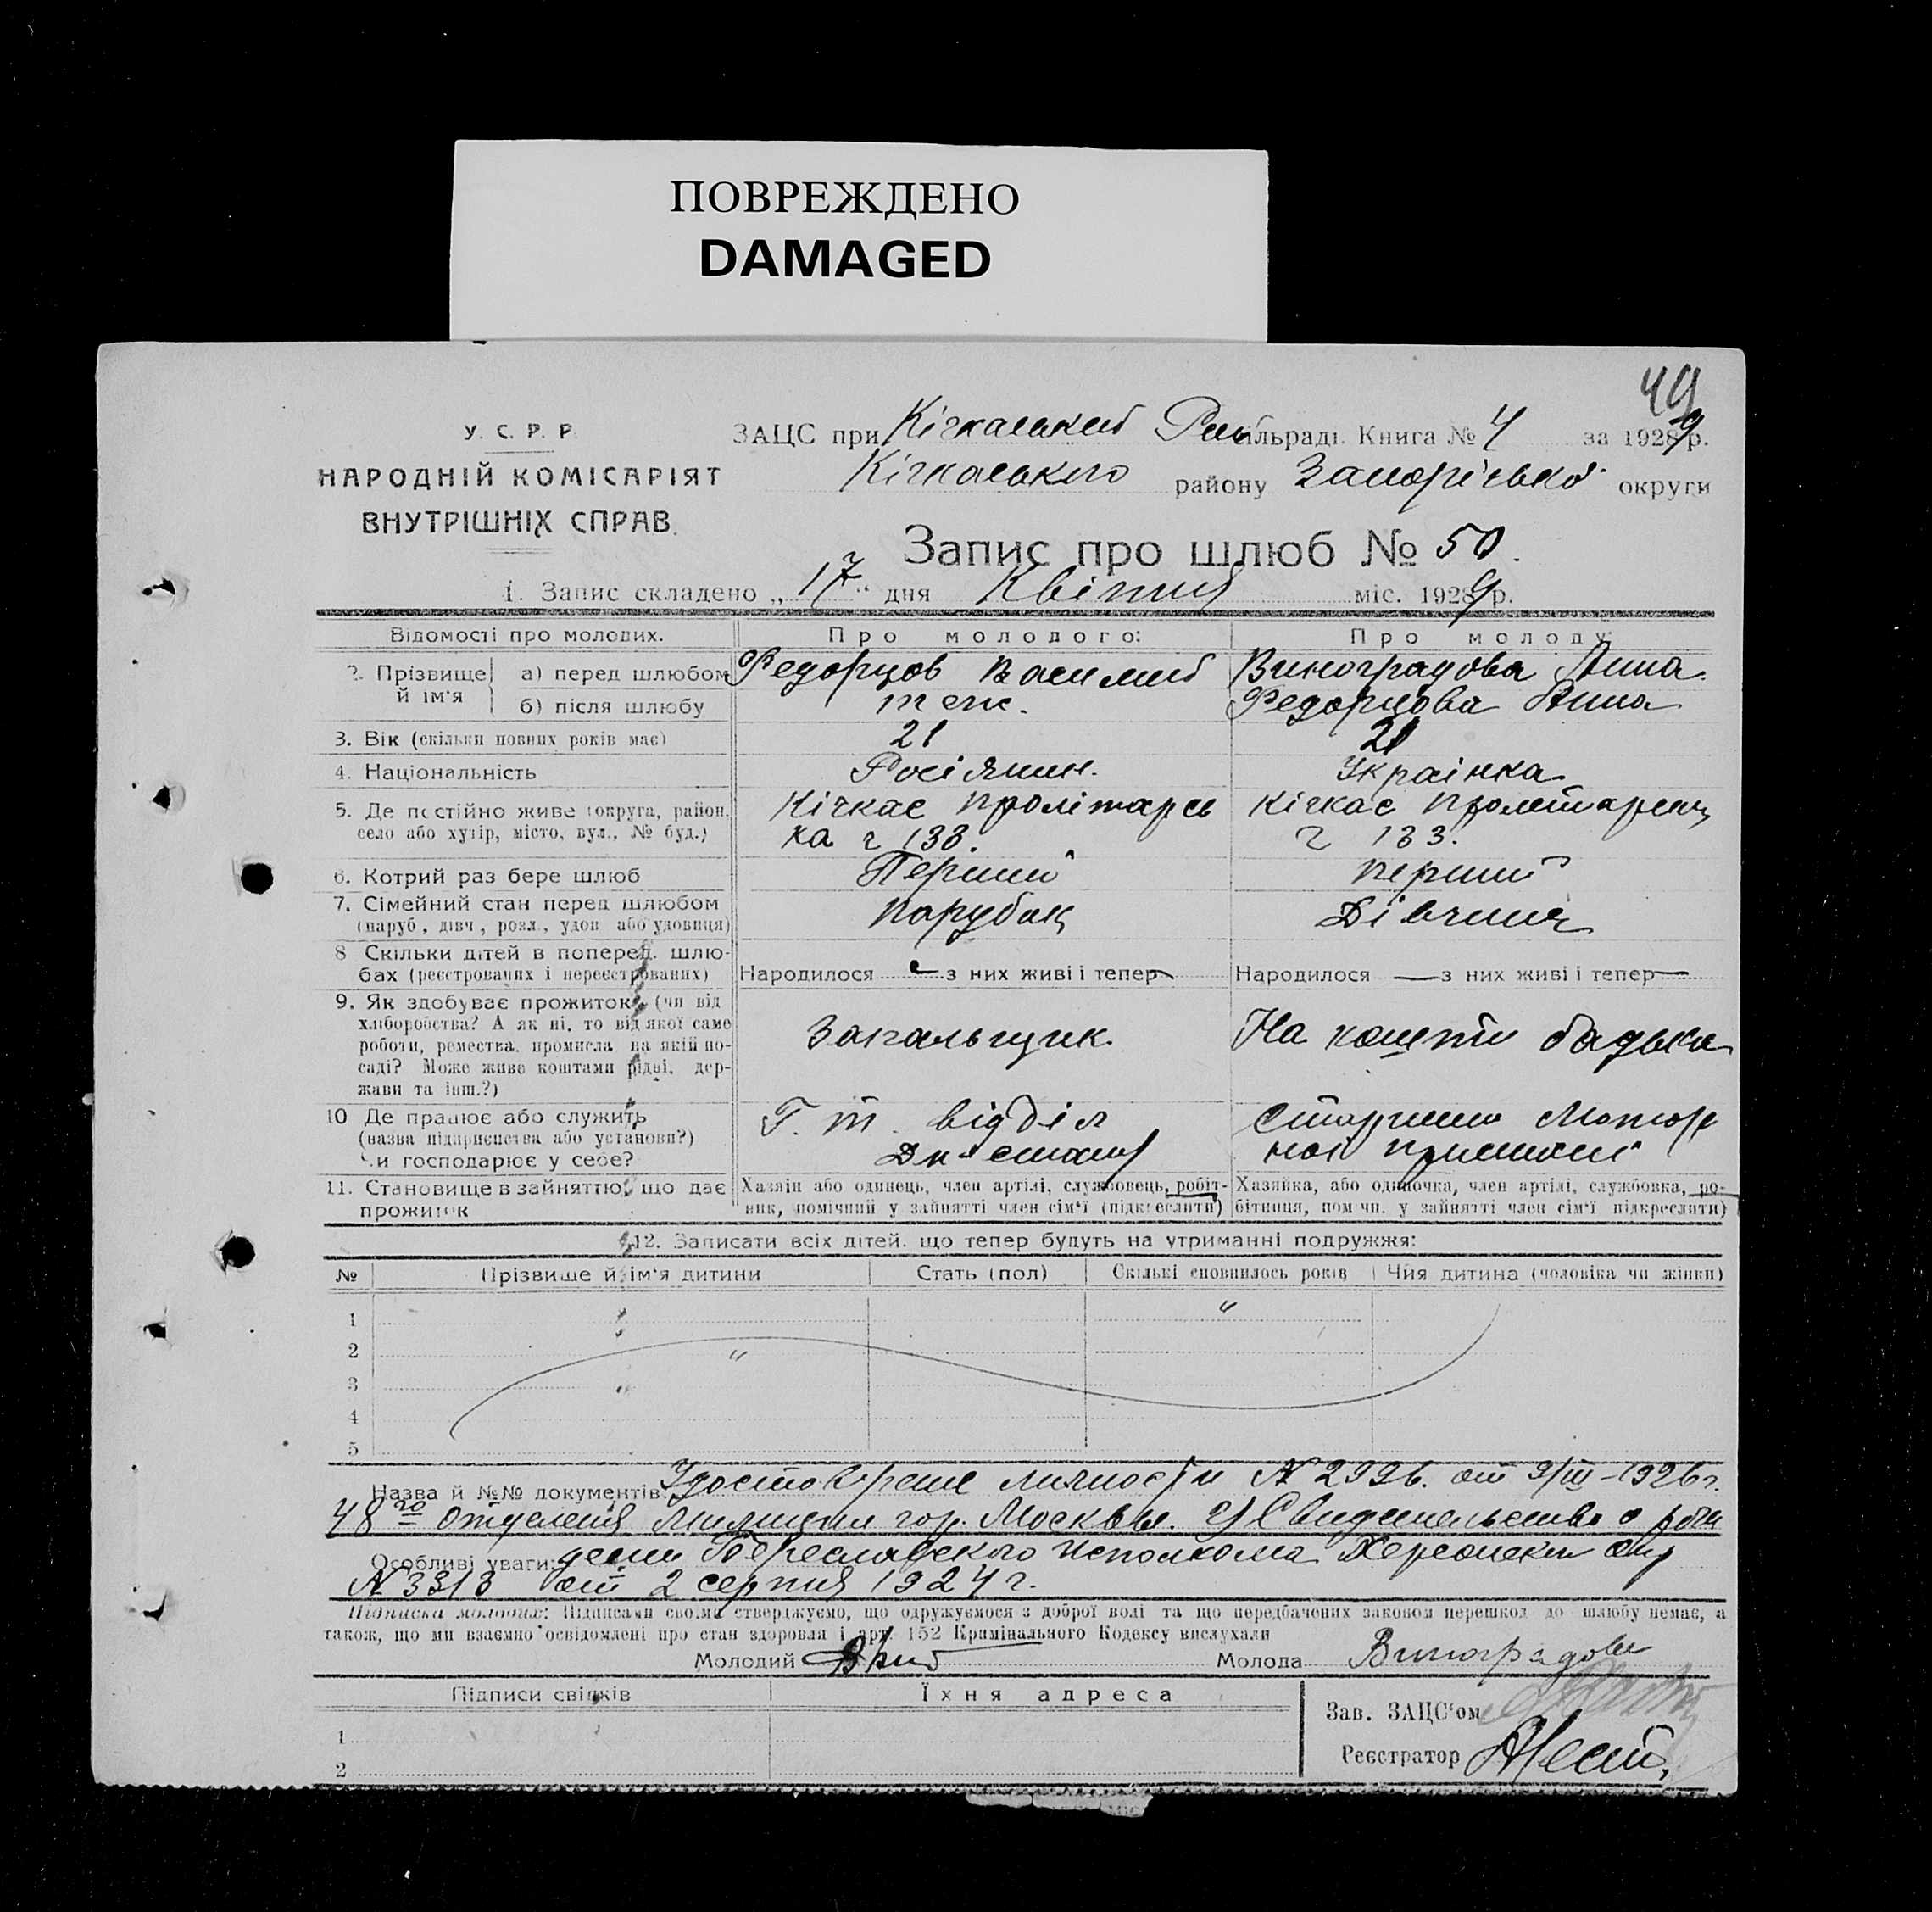 ПОВРЕЖДЕНО
DAMAGED
49
У. С. Р. Р.
НАРОДНІЙ КОМІСАРІЯТ
ВНУТРІШНІХ СПРАВ.
ЗАЦС при Кічкаський сільраді. Книга № 4 за 1929 р.
Кічкаського району Запорізької округи
Запис про шлюб № 50.
1. Запис складено „17“ дня Квітня міс. 1929 р.
Відомості про молодих. Про молодого: Про молоду:
2. Прізвище й ім'я
а) перед шлюбом Федорцов Василий Виноградова Анна
б) після шлюбу теж. Федорцова Анна
3. Вік (скільки повних років має) 21 21
4. Національність Росіянин. Українка
5. Де постійно живе (округа, район, Кічкас Пролітарсь Кічкас
село або хутір, місто, вул., № буд.) ка ч 133. ч 133.
6. Котрий раз бере шлюб Перший перший
7. Сімейний стан перед шлюбом
(паруб., дівч., розл., удов. або удовиця) парубок Дівчина
8 Скільки дітей в поперед. шлю-
бах (реєстрованих і нереєстрованих) Народилося — з них живі і тепер — Народилося — з них живі і тепер —
9. Як здобуває прожиток (чи від
хліборобства? А як ні, то від якої саме
роботи, ремества, промисла, на якій по-
саді? Може живе коштами рідні, дер-
жави та інш.?)
На кошти батька
10 Де працює або служить
(назва підприємства або установи?)
Чи господарює у себе?
Г. т. відділ
11. Становище в зайняттю, що дає
прожиток
Хазяїн або одинець, член артілі, службовець, робіт-
ник, помічний у зайнятті член сім'ї (підкреслити)
Хазяйка, або одиночка, член артілі, службовка, ро-
бітниця, пом чн. у зайнятті член сім'ї підкреслити)
12. Записати всіх дітей, що тепер будуть на утриманні подружжя:
№ Прізвище й ім'я дитини Стать (пол) Скількі сповнилось років Чия дитина (чоловіка чи жінки)
1 "
2 "
3 "
4
5
Назва й №№ документів: личности № 2996. от 9/III-1926 г.
48го Отделения Милиции гор. Москвы. 2) Свидетельство о рож
Особливі уваги: дении исполкома Херсонской окр
№ 3313 от 2 серпня 1924 г.
Підписка молодих: Підписами своїми стверджуємо, що одружуємося з доброї волі та що передбачених законом перешкод до шлюбу немає, а
також, що ми взаємно освідомлені про стан здоровля і арт. 152 Кримінального Кодексу вислухали
Молодий Молода Виноградова
Підписи свідків Їхня адреса
Зав. ЗАЦС'ом
1
Реєстратор
2